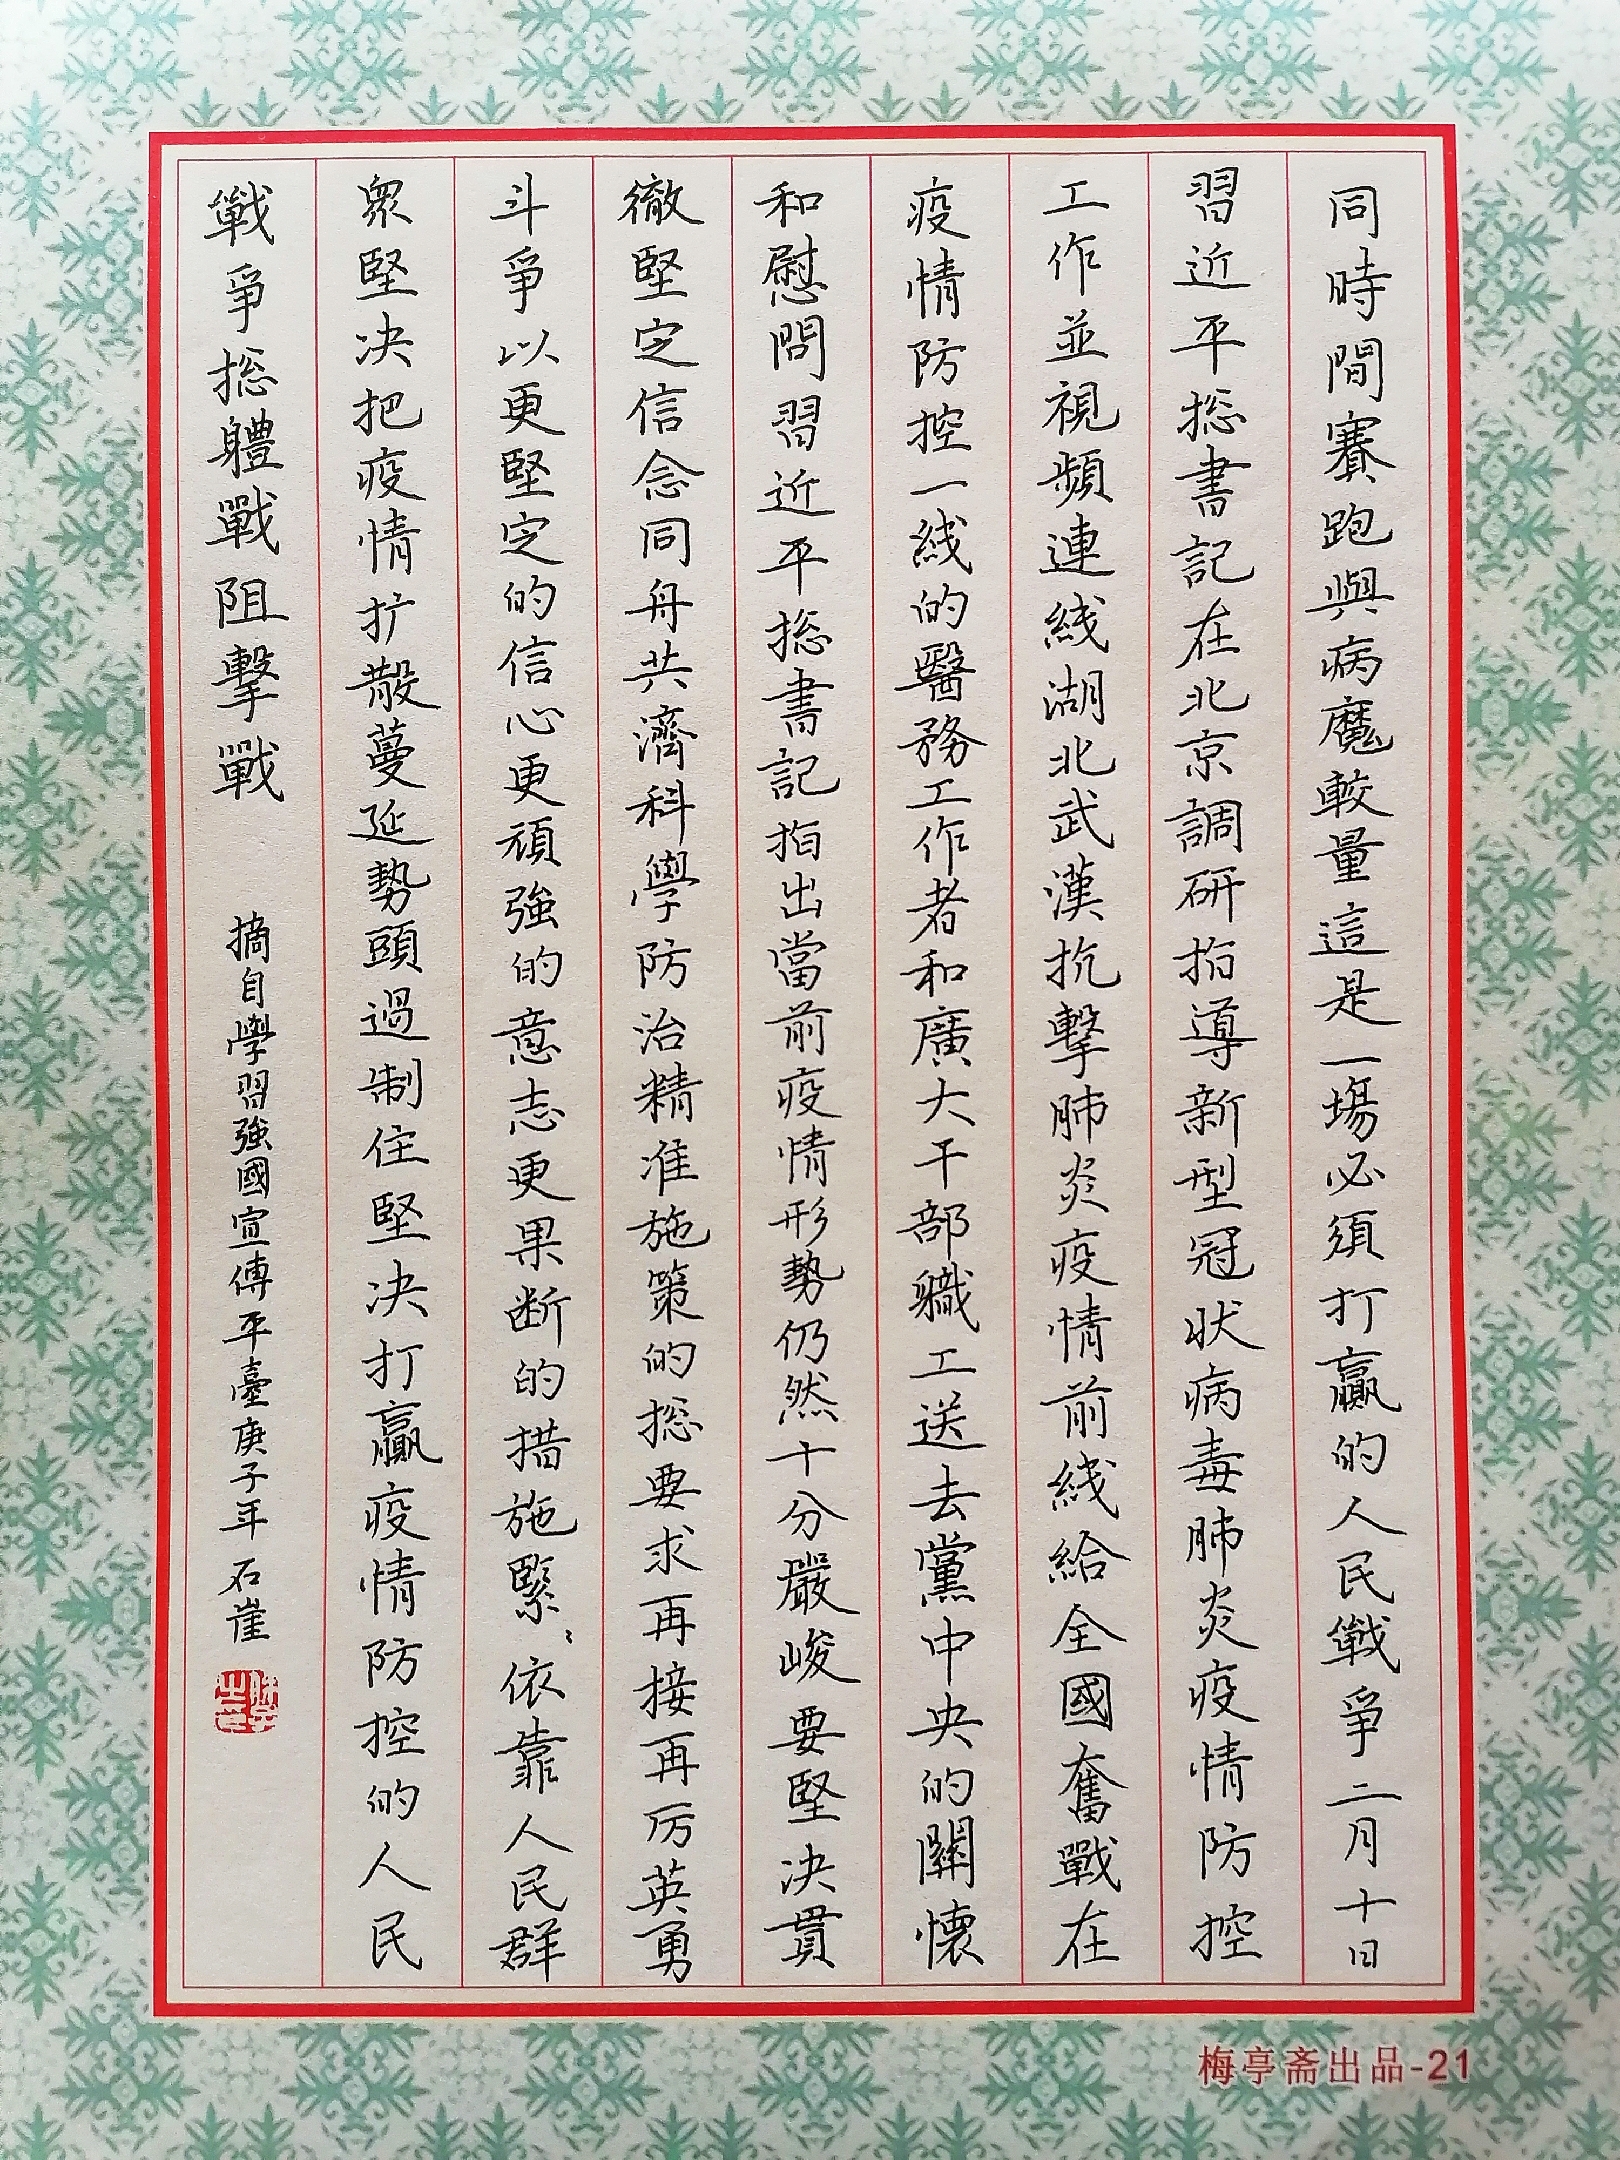 同時間賽跑與病魔較量這是一場必須打贏的人民戰爭二月十日
習近平総書記在北京調研指導新型冠状病毒肺炎疫情防控
工作並視頻連线湖北武漢抗擊肺炎疫情前线給全國奮戰在
疫情防控一线的醫務工作者和廣大干部職工送去黨中央的關懷
和慰問習近平総書記指出當前疫情形勢仍然十分嚴峻要堅决貫
徹堅定信念同舟共濟科學防治精准施策的総要求再接再厉英勇
斗爭以更堅定的信心更頑強的意志更果断的措施緊〻依靠人民群
衆堅决把疫情扩散蔓延勢頭遏制住堅决打贏疫情防控的人民
戰爭総體戰阻擊戰 摘自學習強國宣傳平臺庚子年石崖
梅亭斋出品-21